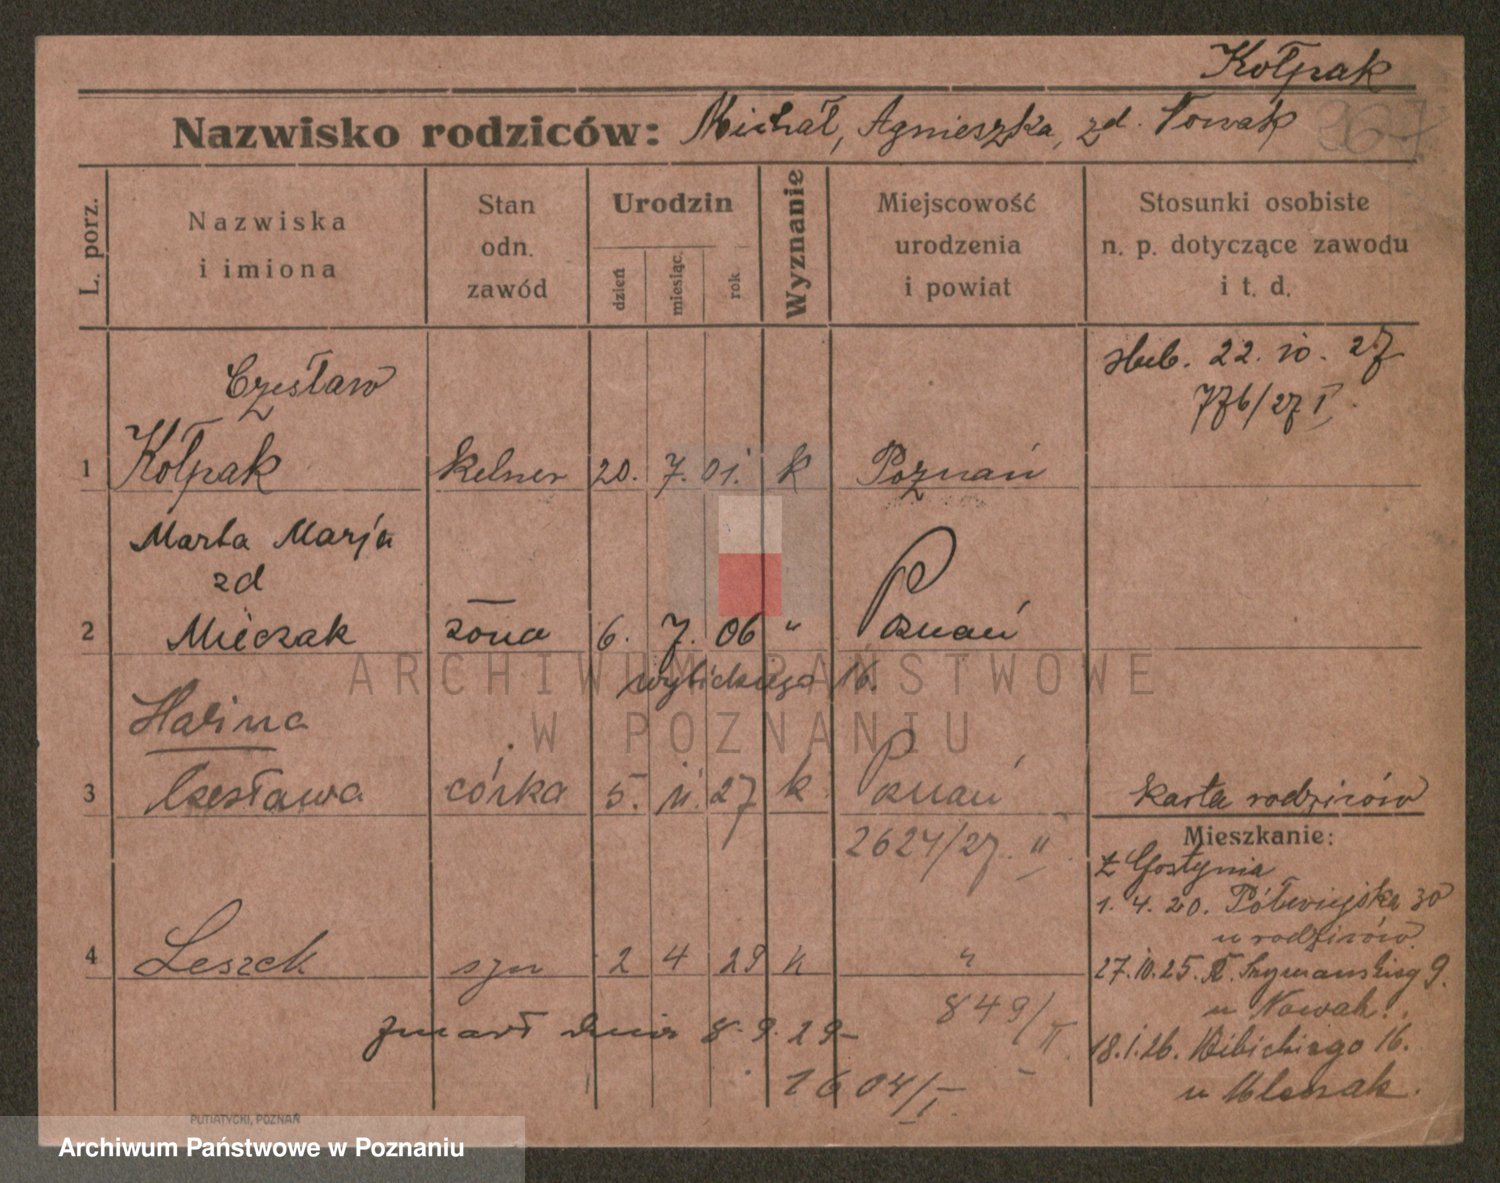 Kołpak
Nazwisko rodziców: Michał, Agnieszka, zd. Nowak
367
L. porz.
Nazwiska
i imiona
Stan
odn.
zawód
Urodzin
dzień
miesiąc.
rok
Wyznanie
Miejscowość
urodzenia
i powiat
Stosunki osobiste
n. p. dotyczące zawodu
i t. d.
ślub. 22. 10. 27
776/27 I.
Czesław
1 Kołpak kelner 20. 7. 01. k Poznań
Marta Marja
zd
2 Mieczak żona 6. 7. 06 " Poznań
Wybickiego 16.
Halina
3 Czesława córka 5. 11. 27 k Poznań
2624/27. II
4 Leszek syn 2 4 29 k "
849/II
zmarł dnia 8. 9. 29 –
1604/I.
karta rodziców
Mieszkanie:
z Gostynia
1. 4. 20. Półwiejska 30
u rodziców.
27.10.25. Szymańskieg 9.
u Nowak.
18.1.26. Wibickiego 16.
u
PUTIATYCKI, POZNAŃ
ARCHIWUM PAŃSTWOWE
W POZNANIU
Archiwum Państwowe w Poznaniu